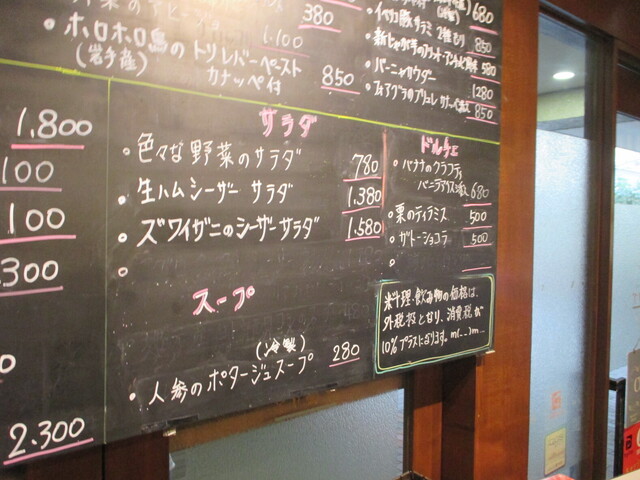 380
・ホロホロ鳥のトリレバーペースト
(岩手産)
カナッペ付
1.100
850
680
850
580
・バーニャカウダー
1280
850
1.800
100
100
300
2.300
サラダ
・色々な野菜のサラダ 780
・生ハムシーザーサラダ 1.380
・ズワイガニのシーザーサラダ 1.580
スープ
(冷製)
・人参のポタージュスープ 280
ドルチェ
・バナナのクラフティ
680
・栗のティラミス 500
・ガトーショコラ 500
※料理、飲み物の価格は、
外税扱となり、消費税が
10%プラスになります。m(_ _)m